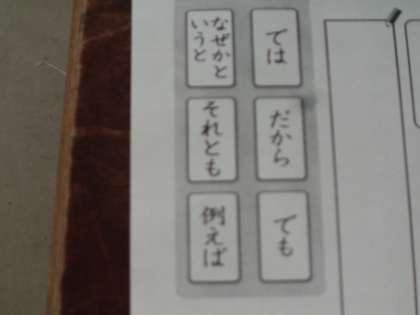 では
だから
でも
なぜかと
いうと
それとも
例えば